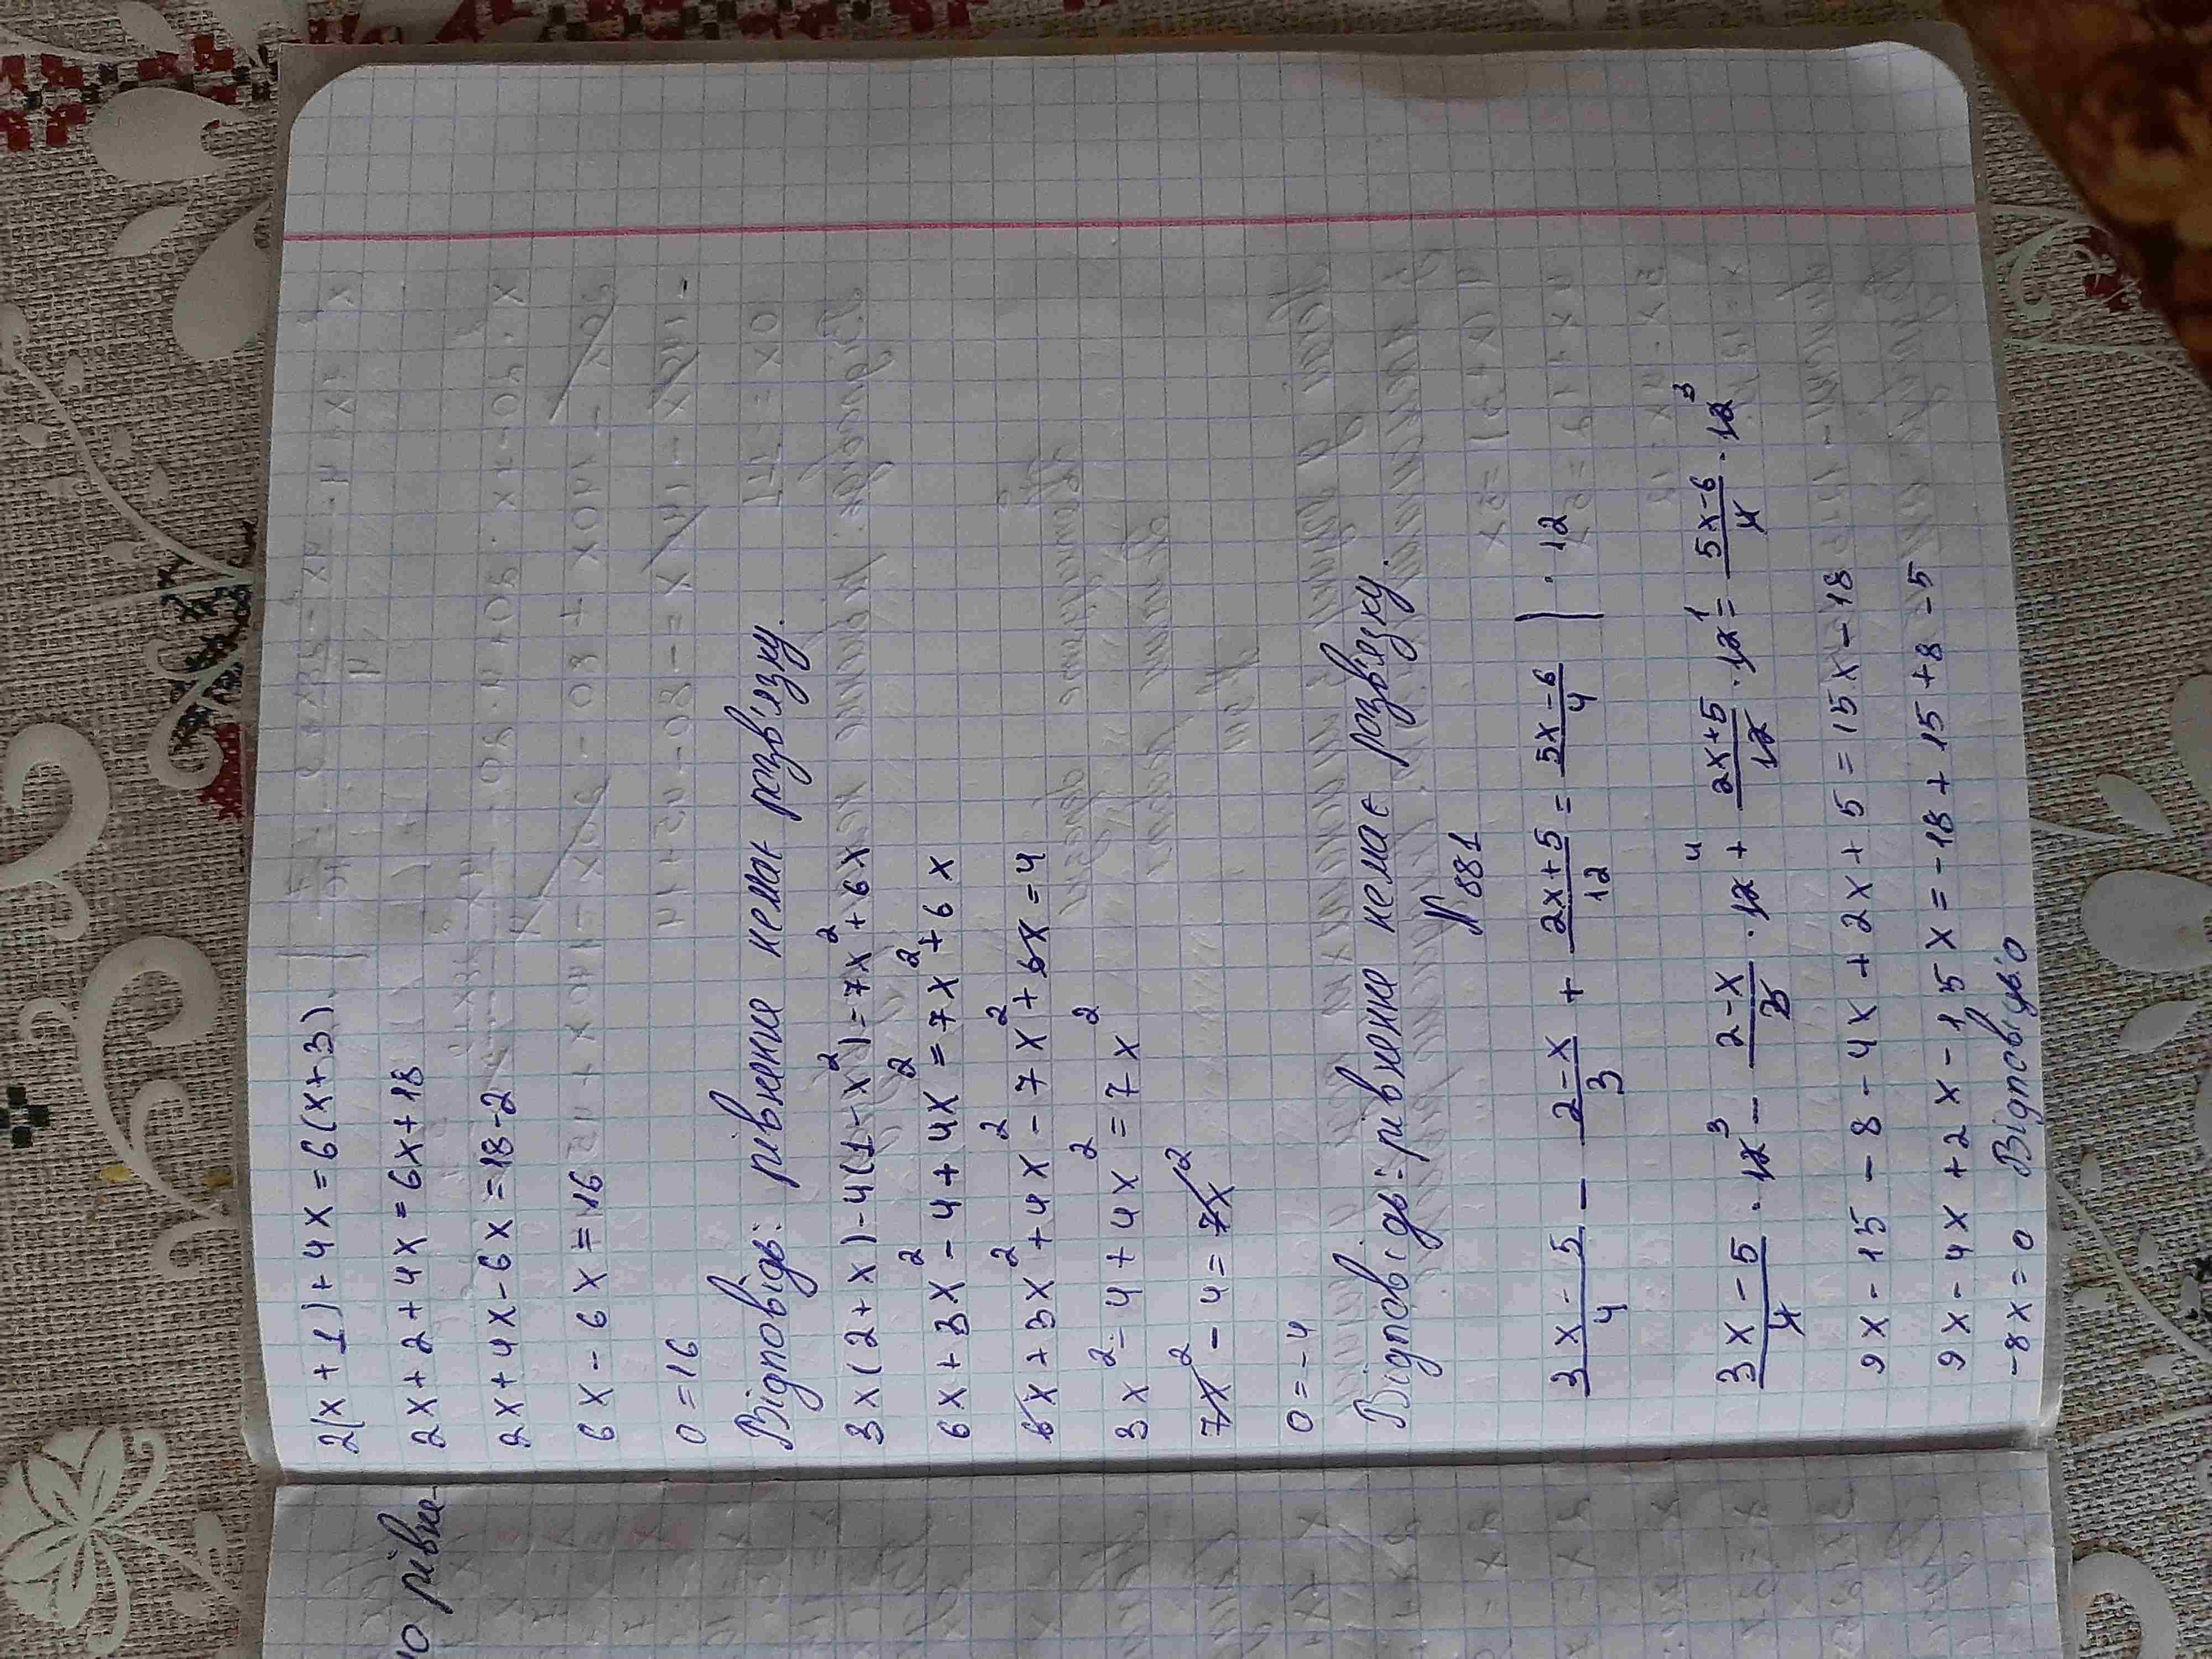 2(x+1)+4x=6(x+3)
2x+2+4x=6x+18
2x+4x-6x=18-2
6x-6x=16
0=16
Відповідь: рівнення немає розв'язку.
3x(2+x)-4(1-x²)=7x²+6x
6x+3x²-4+4x²=7x²+6x
6x+3x²+4x²-7x²+6x=4
3x²-4+4x²=7x²
7x²-4=7x²
0=-4
Відповідь: рівнення немає розв'язку.
№881
3x-5/4 - 2-x/3 + 2x+5/12 = 5x-6/4 | ·12
3x-5/4 ·12³ - 2-x/3 ·12⁴ + 2x+5/12 ·12¹ = 5x-6/4 ·12³
9x-15-8-4x+2x+5=15x-18
9x-4x+2x-15x=-18+15+8-5
-8x=0 Відповідь:0
ю рівне-